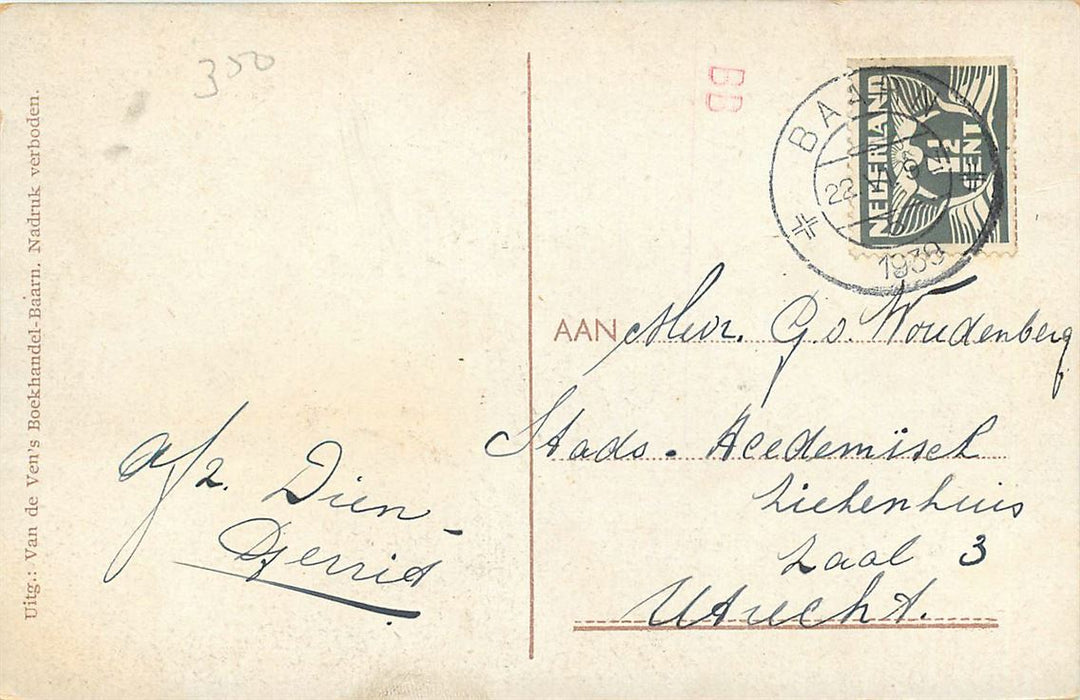 350
BB
BAARN
1939
NEDERLAND
1½ CENT
AAN Mevr. G. v. Woudenberg
Stads. Acedemisch
Ziekenhuis
Zaal 3
Utrecht.
afz. Dien-
Gerrit
Uitg.: Van de Ven's Boekhandel-Baarn. Nadruk verboden.